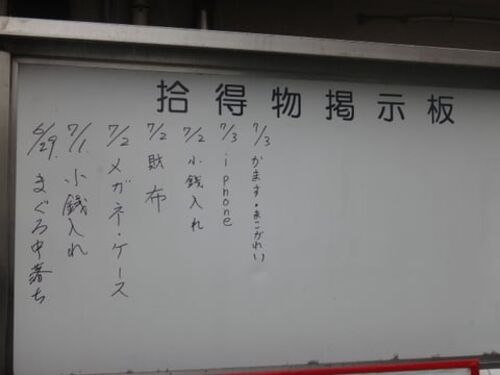 拾得物掲示板
7/3 かます・まこがれい
7/3 iphone
7/2 小銭入れ
7/2 財布
7/2 メガネ・ケース
7/1 小銭入れ
6/29. まぐろ中落ち